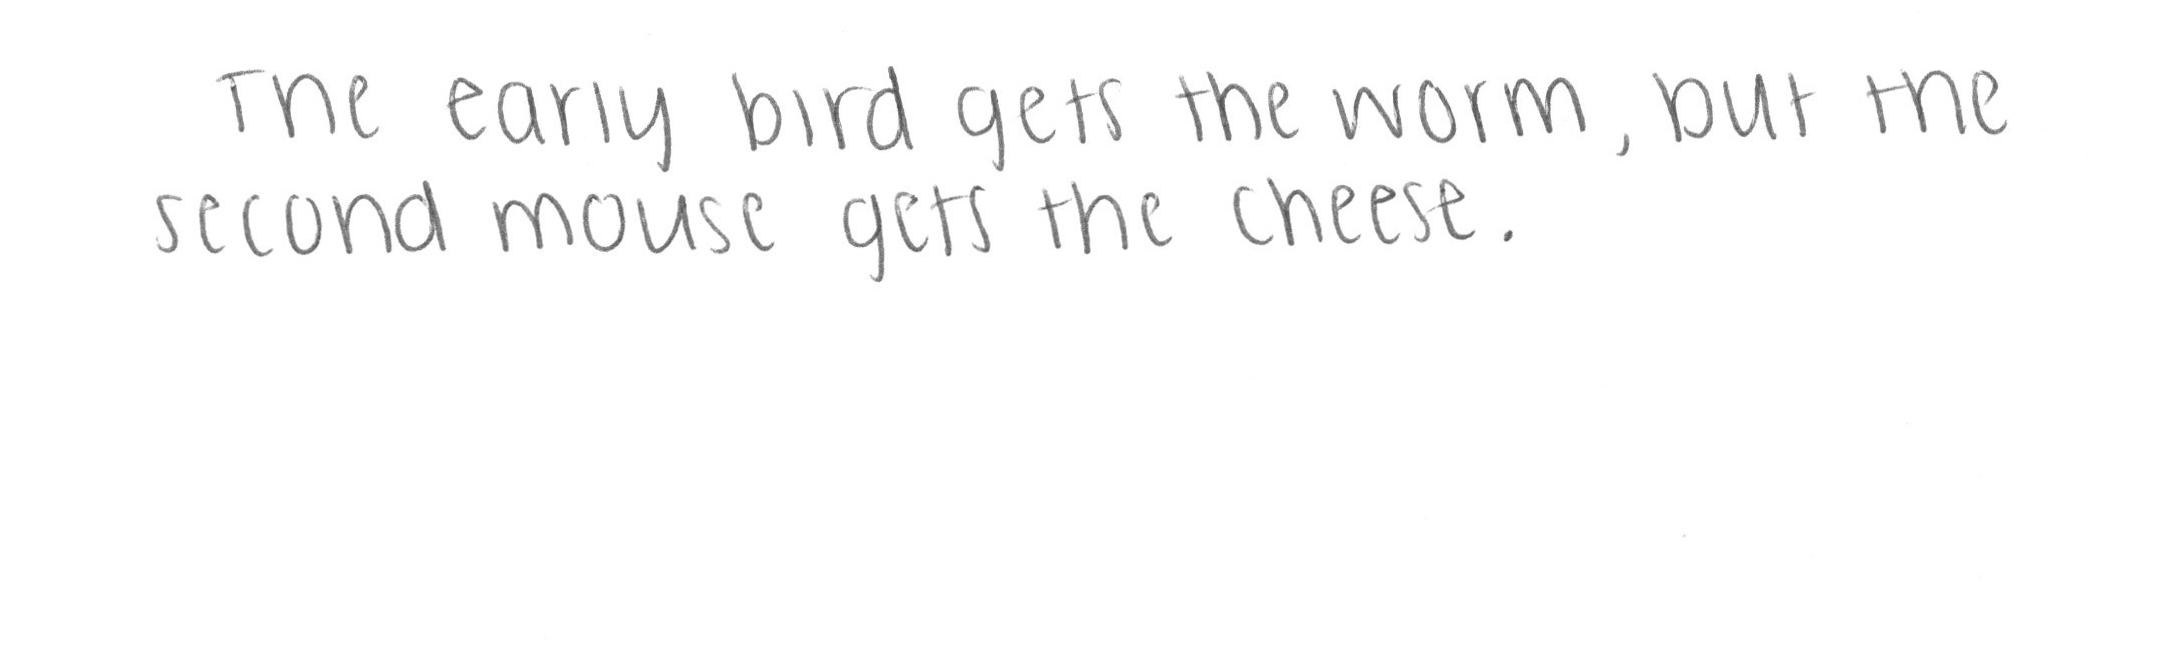 The early bird gets the worm, but the
second mouse gets the cheese.